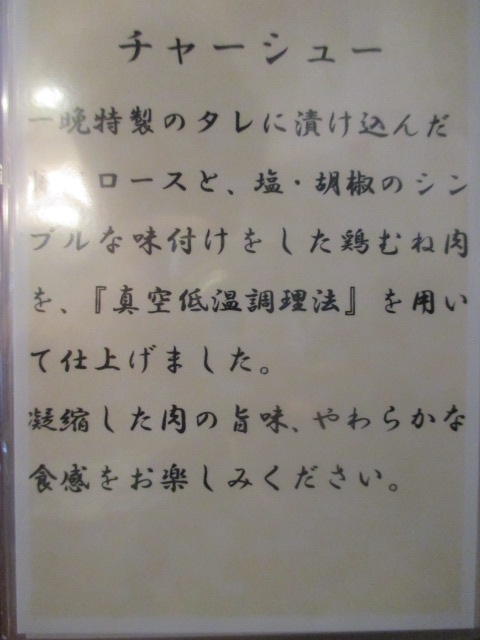 チャーシュー
一晩特製のタレに漬け込んだ
ロースと、塩・胡椒のシン
プルな味付けをした鶏むね肉
を、『真空低温調理法』を用い
て仕上げました。
凝縮した肉の旨味、やわらかな
食感をお楽しみください。